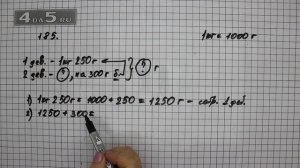 4DA5.RU
185.
1кг = 1000 г
1 дев. - 1кг 250г
2 дев. - ?, на 300г б.
?
1) 1кг 250г = 1000 + 250 = 1250г - собр. 1 дев.
2) 1250 + 300